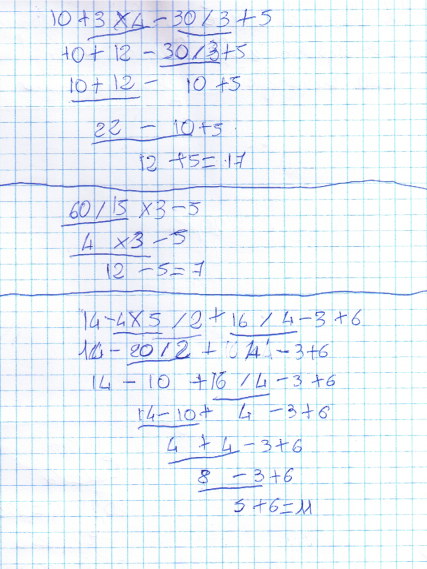 10+3×4-30/3+5
10+12-30/3+5
10+12- 10+5
22 - 10+5
12 +5=17
60/15×3-5
4 ×3-5
12 -5=7
14-4×5/2+16/4-3+6
14-20/2+ 4 -3+6
14-10 +16/4-3+6
14-10+ 4 -3+6
4 + 4-3+6
8 -3+6
5+6=11